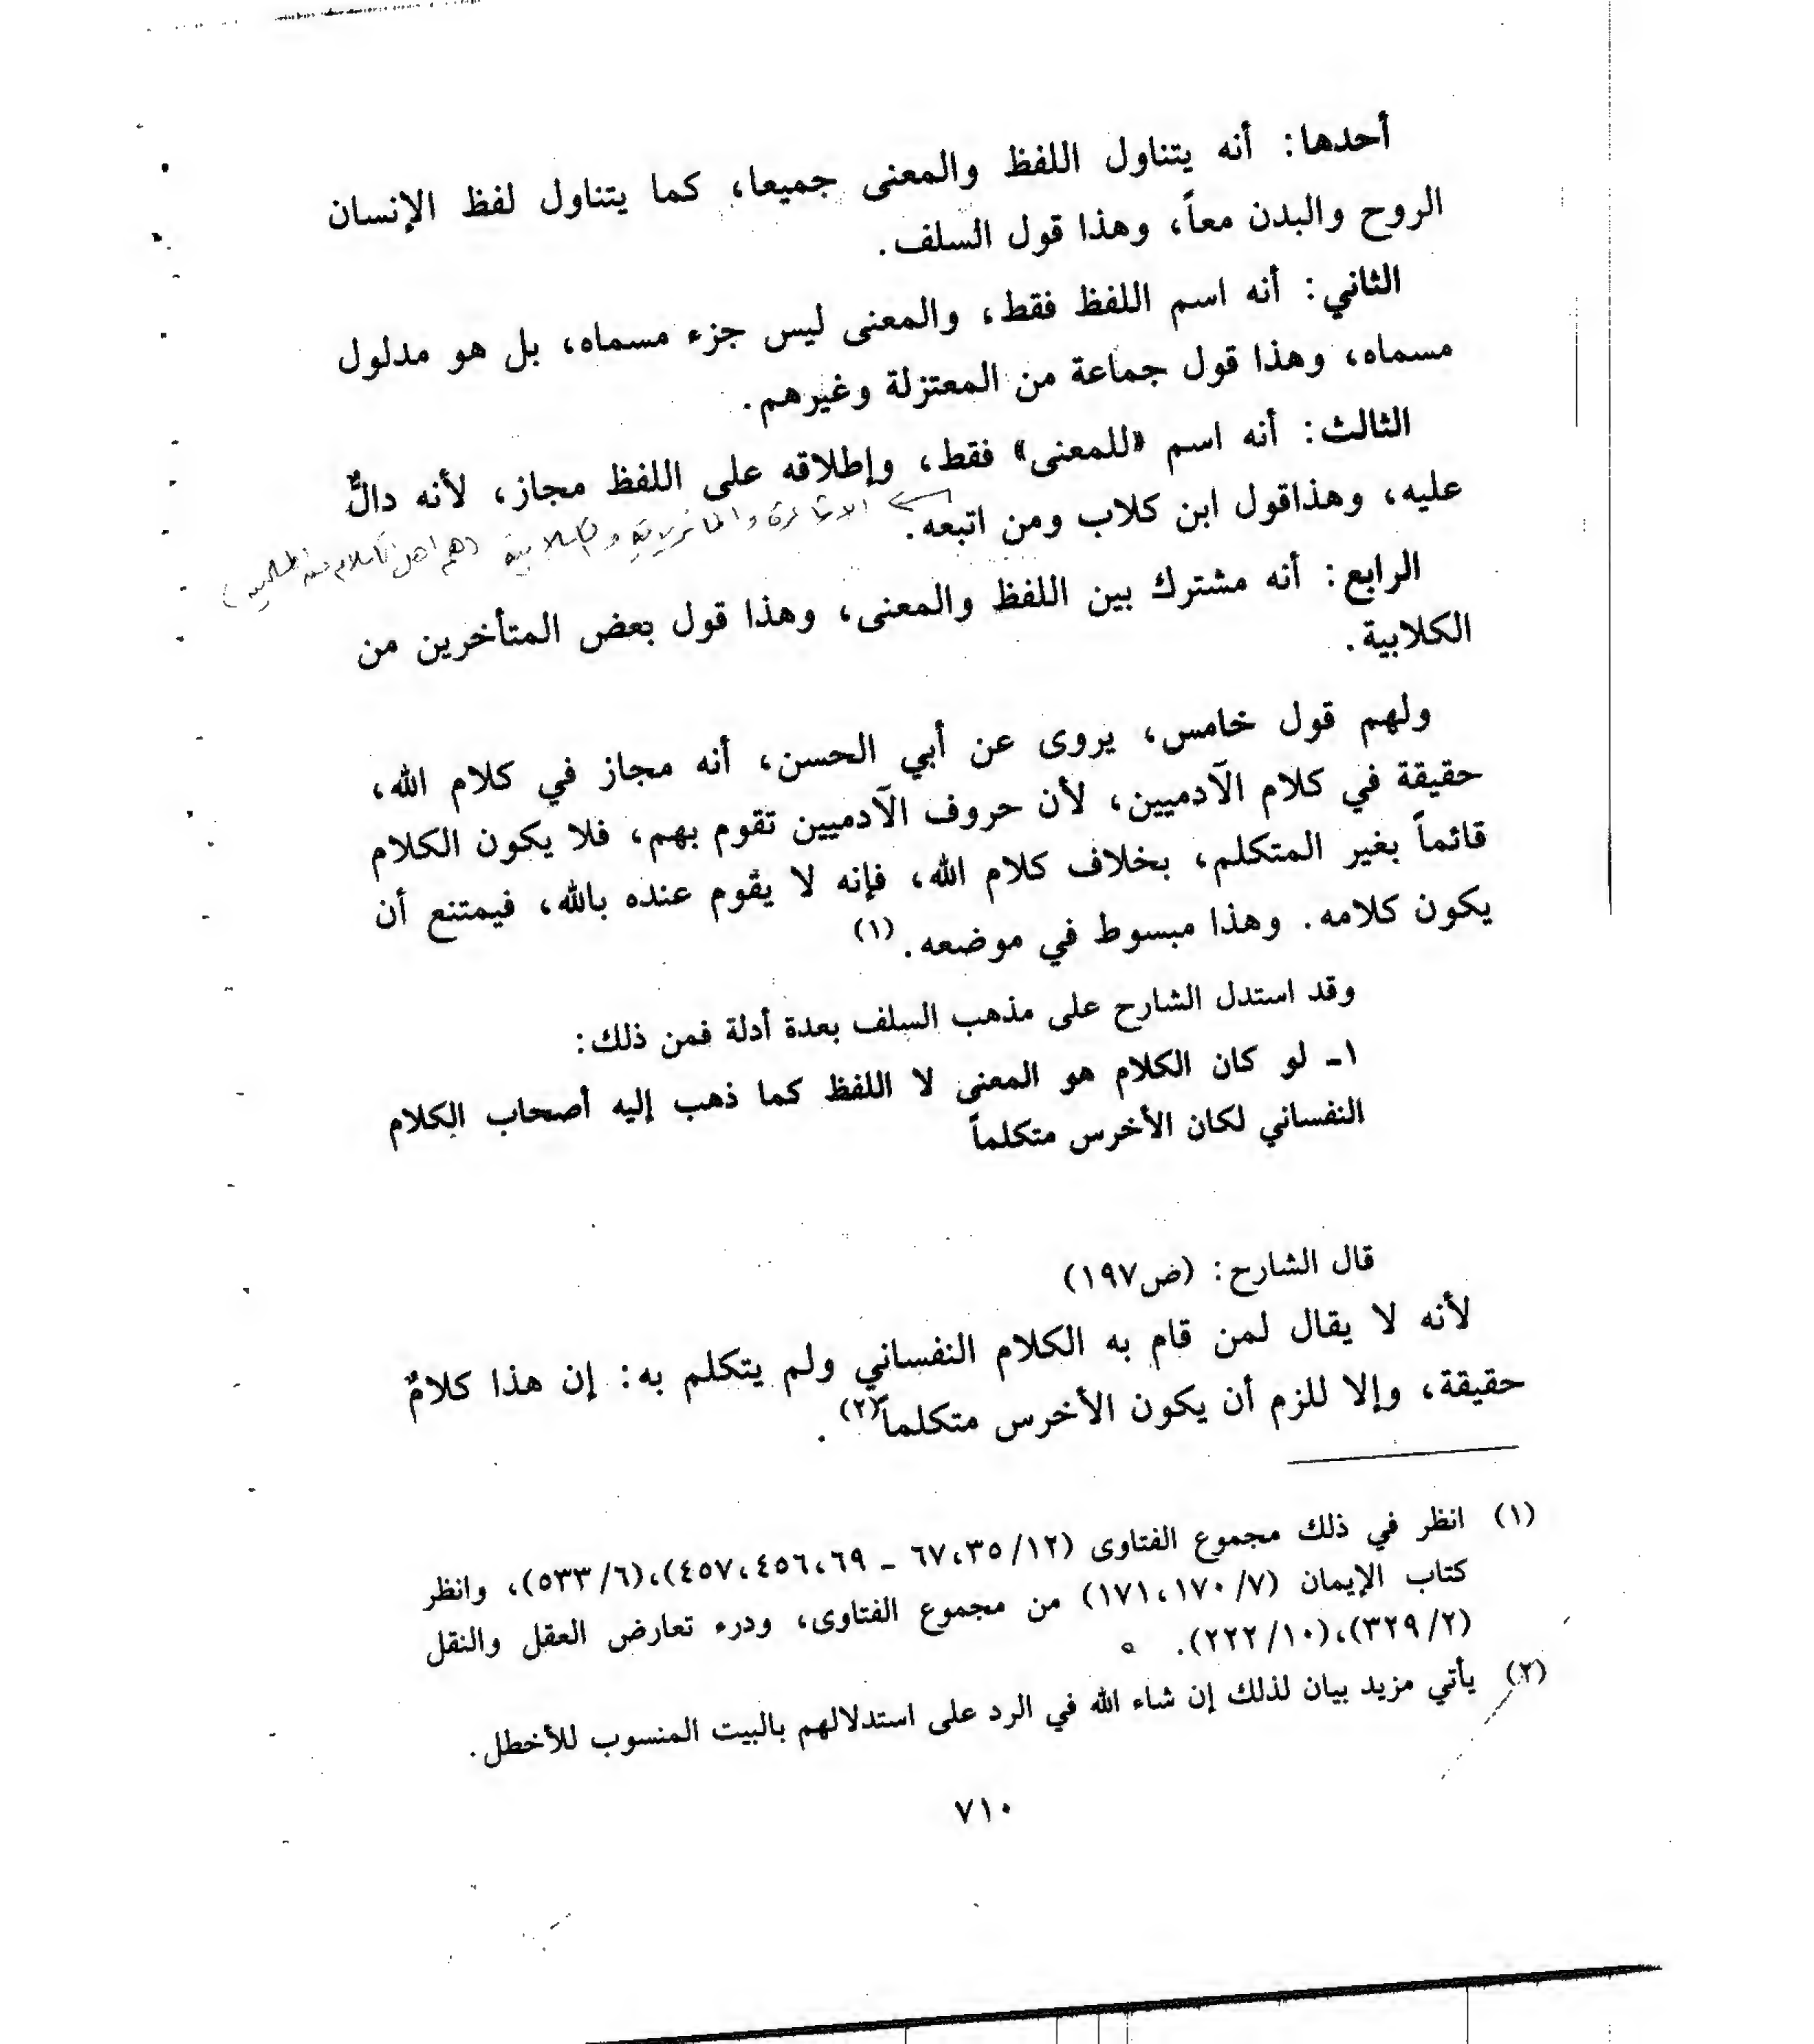 أحدها: أنه يتناول اللفظ والمعنى جميعا، كما يتناول لفظ الإنسان
الروح والبدن معاً، وهذا قول السلف.
الثاني: أنه اسم اللفظ فقط، والمعنى ليس جزء مسماه، بل هو مدلول
مسماه، وهذا قول جماعة من المعتزلة وغيرهم.
الثالث: أنه اسم «للمعنى» فقط، وإطلاقه على اللفظ مجاز، لأنه دالٌّ
عليه، وهذاقول ابن كلاب ومن اتبعه.
الاشاعرة والماتريدية والكلابية (هم اهل الكلام
الرابع: أنه مشترك بين اللفظ والمعنى، وهذا قول بعض المتأخرين من
الكلابية.
ولهم قول خامس، يروى عن أبي الحسن، أنه مجاز في كلام الله،
حقيقة في كلام الآدميين، لأن حروف الآدميين تقوم بهم، فلا يكون الكلام
قائماً بغير المتكلم، بخلاف كلام الله، فإنه لا يقوم عنده بالله، فيمتنع أن
يكون كلامه. وهذا مبسوط في موضعه.(١)
وقد استدل الشارح على مذهب السلف بعدة أدلة فمن ذلك:
١ـ لو كان الكلام هو المعنى لا اللفظ كما ذهب إليه أصحاب الكلام
النفساني لكان الأخرس متكلماً
قال الشارح: (ص١٩٧)
لأنه لا يقال لمن قام به الكلام النفساني ولم يتكلم به: إن هذا كلامٌ
حقيقة، وإلا للزم أن يكون الأخرس متكلماً(٢).
(١) انظر في ذلك مجموع الفتاوى (١٢/٣٥،٦٧ ـ ٦٩،٤٥٦،٤٥٧)،(٦/٥٣٣)، وانظر
كتاب الإيمان (٧/١٧٠،١٧١) من مجموع الفتاوى، ودرء تعارض العقل والنقل
(٢/٣٢٩)،(١٠/٢٢٢).
(٢) يأتي مزيد بيان لذلك إن شاء الله في الرد على استدلالهم بالبيت المنسوب للأخطل.
٧١٠